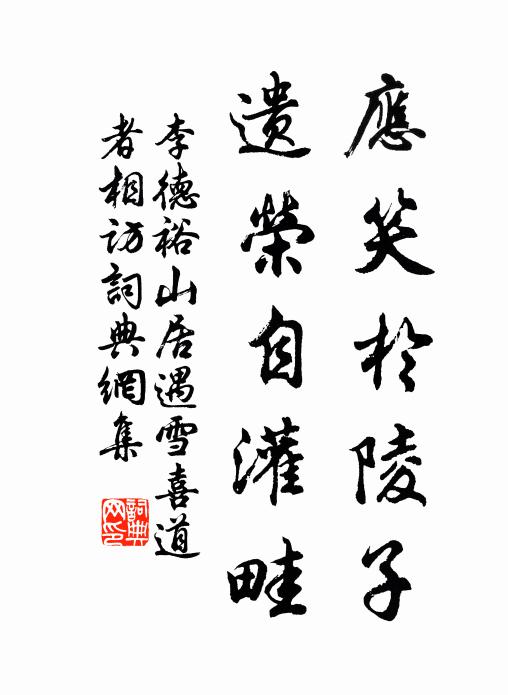 應笑於陵子
遺榮自灌畦
李德裕山居遇雪喜道
者相訪詞典網集
詞典
网印